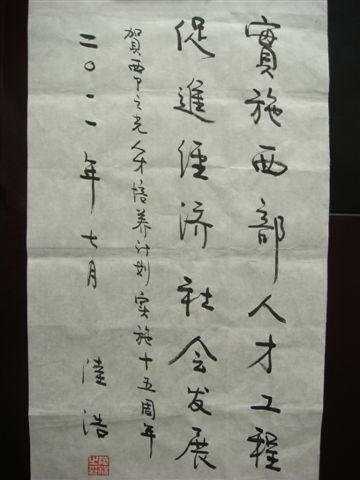 實施西部人才工程
促進经济社会发展
賀西部之光人才培养计划实施十五周年
二〇一一年七月 陸浩